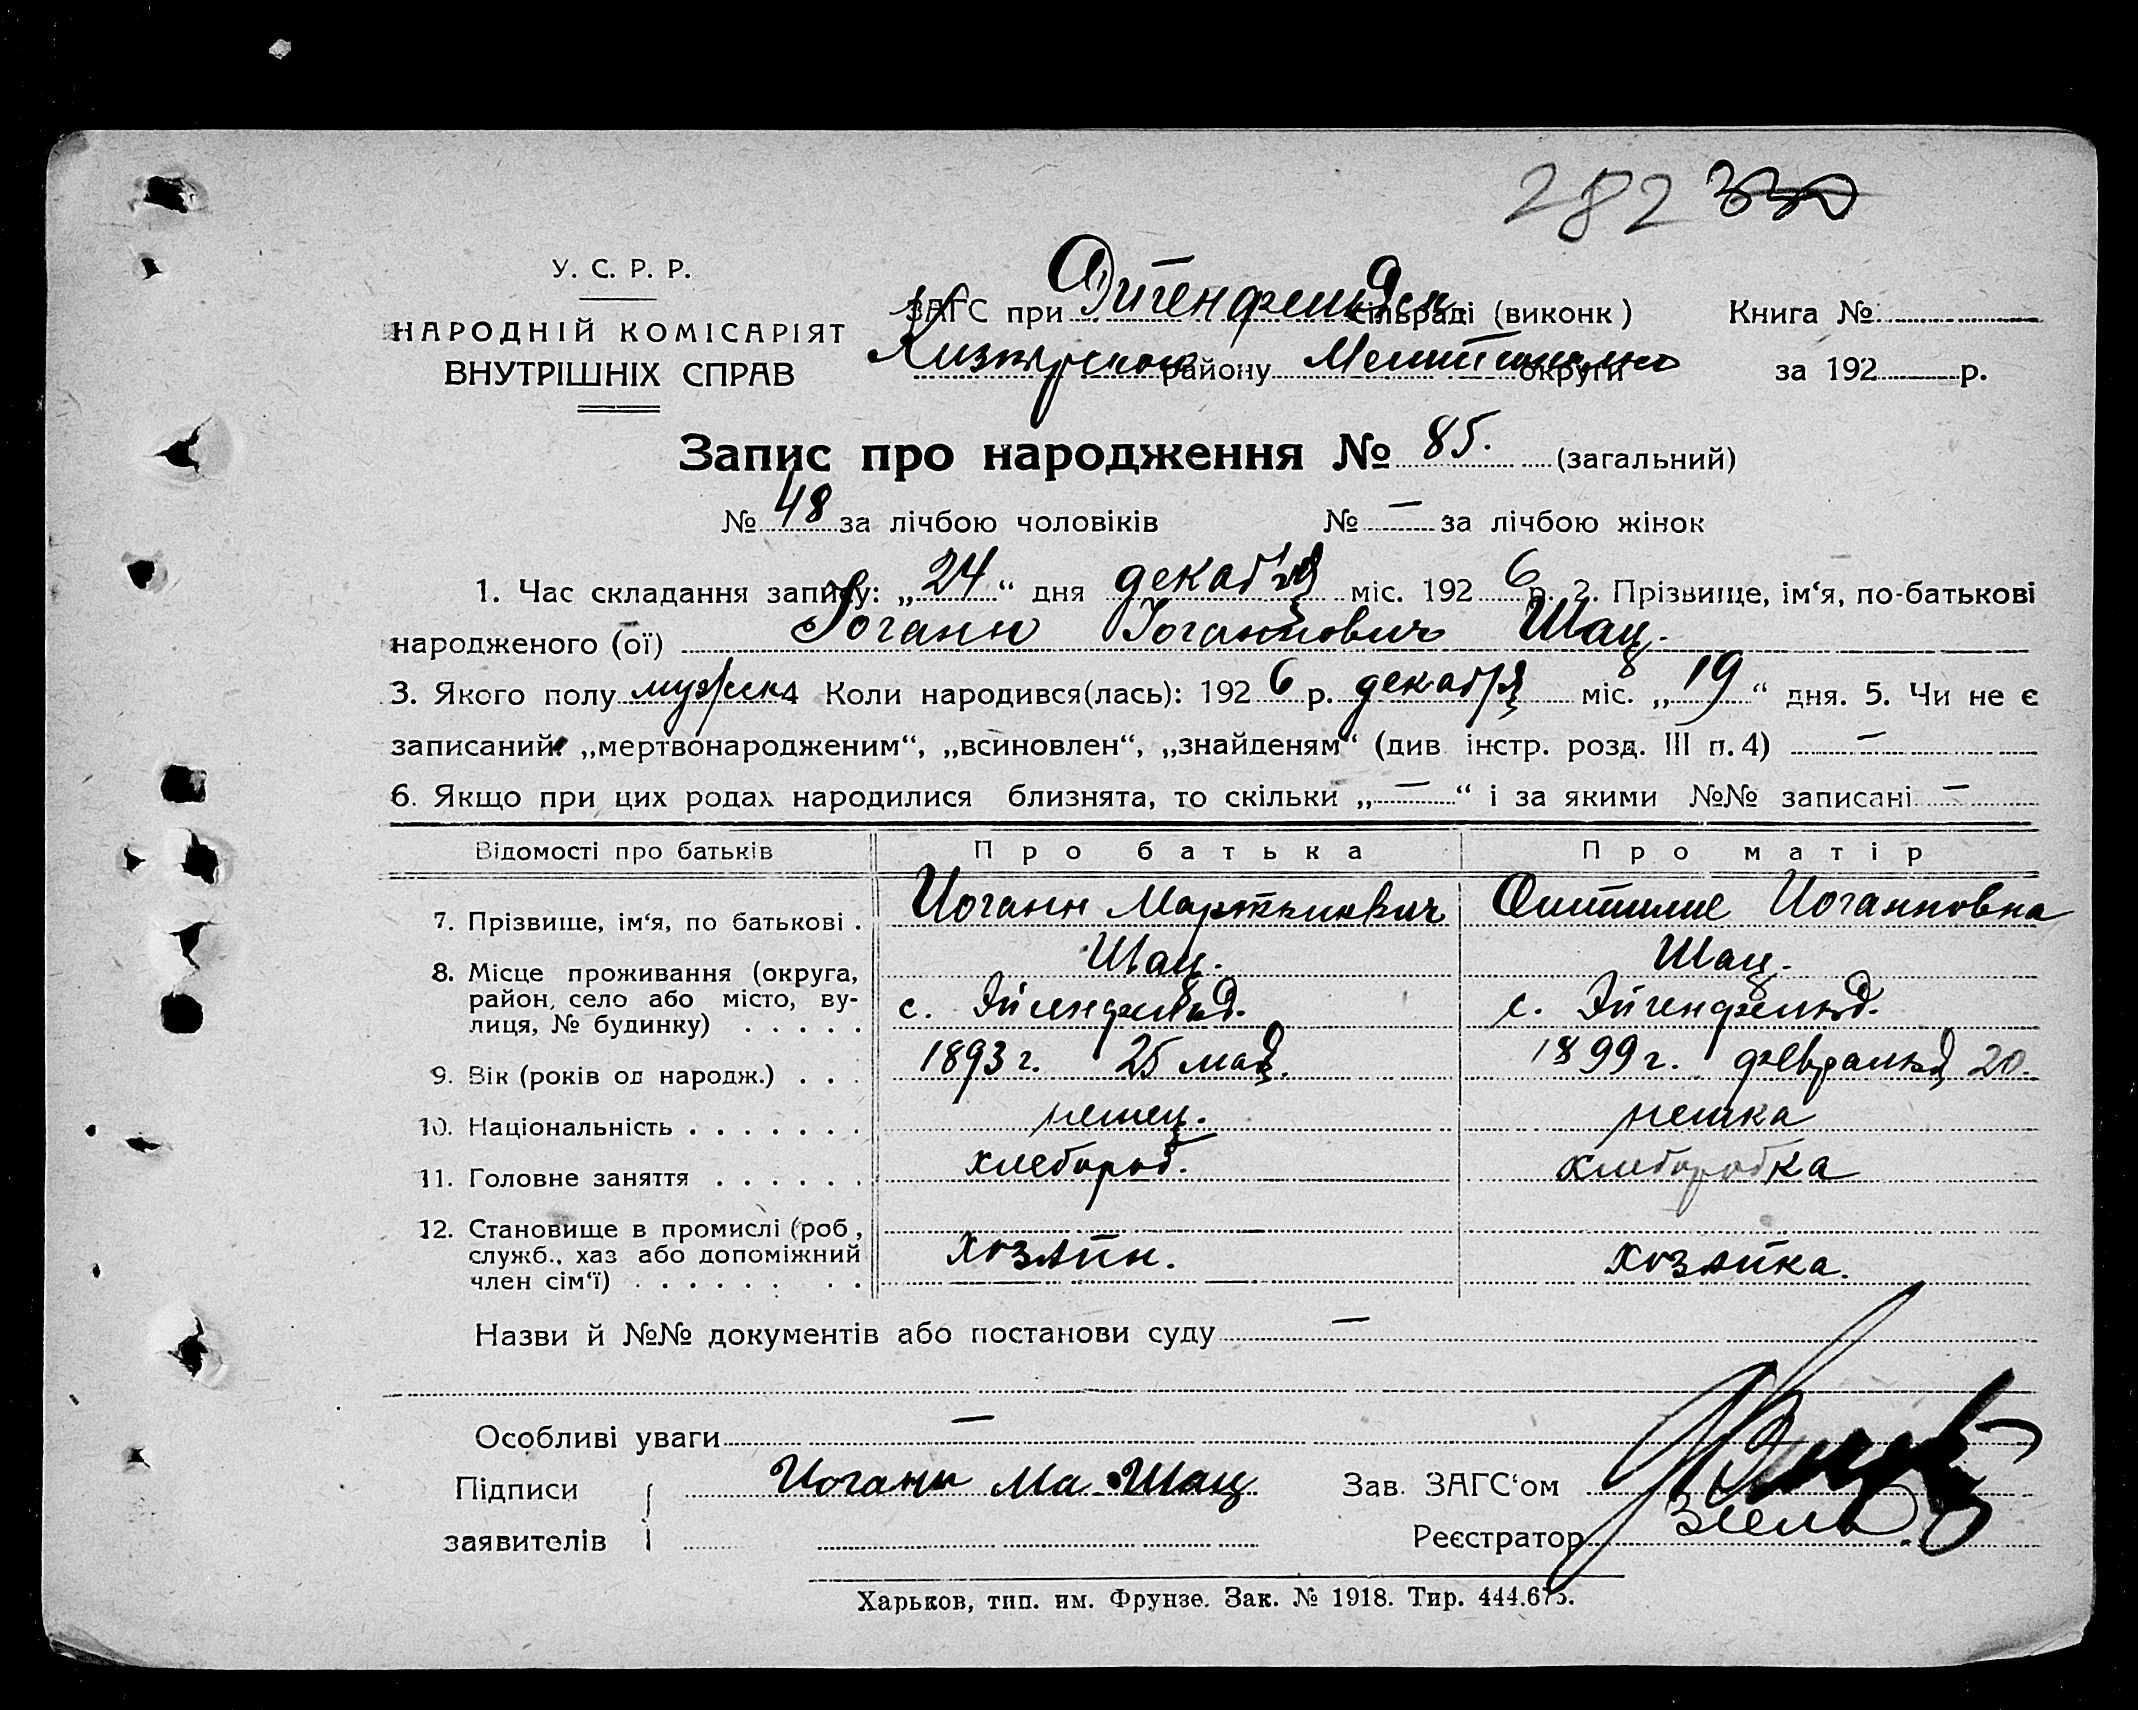 282 330
У. С. Р. Р.
НАРОДНІЙ КОМІСАРІЯТ
ВНУТРІШНІХ СПРАВ
ЗАГС при Эйгенфельдск сільраді (виконк) Книга №
району округи за 192 р.
Запис про народження № 85. (загальний)
№ 48 за лічбою чоловіків № — за лічбою жінок
1. Час складання запису: „24“ дня декабря міс. 1926 р. 2. Прізвище, ім‘я, по-батькові
народженого (ої) Иоганн Иоганнович Шац.
3. Якого полу мужск 4 Коли народився(лась): 1926 р. декабря міс. „19“ дня. 5. Чи не є
записаний: „мертвонародженим“, „всиновлен“, „знайденям“ (див. інстр. розд. III п. 4) —
6. Якщо при цих родах народилися близнята, то скільки „—“ і за якими №№ записані —
Відомості про батьків Про батька Про матір
7. Прізвище, ім‘я, по батькові . Иоганн Мартынович Шац. Оттилие Иоганновна Шац.
8. Місце проживання (округа,
район, село або місто, ву-
лиця, № будинку) . . . . . с. Эйгенфельд. с. Эйгенфельд.
9. Вік (років од народж.) . . . 1893 г. 25 мая. 1899 г. февраля 20.
10. Національність . . . . . . . немец. немка
11. Головне заняття . . . . . . хлебороб. хлеборобка
12. Становище в промислі (роб,
служб., хаз або допоміжний
член сім‘ї) . . . . . . . . хозяин. хозяйка.
Назви й №№ документів або постанови суду —
Особливі уваги —
Підписи Иоганн Ма Шац Зав. ЗАГС‘ом
заявителів Реєстратор
Харьков, тип. им. Фрунзе. Зак. № 1918. Тир. 444.675.